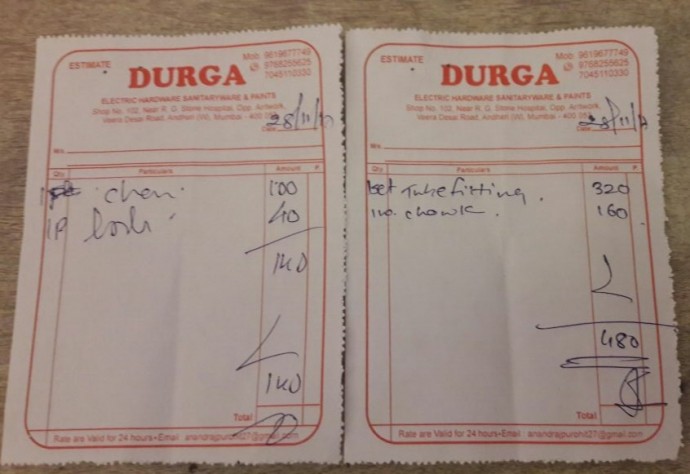 ESTIMATE
Mob: 9619677749
9768255625
7045110330
DURGA
ELECTRIC HARDWARE SANITARYWARE & PAINTS
Shop No. 102, Near R. G. Stone Hospital, Opp. Artwork,
Veera Desai Road, Andheri (W), Mumbai - 400 053
28/11/17
Date
M/s.
Qty. Particulars Amount P.
100
1P 40
140
140
Total
Rate are Valid for 24 hours • Email : anandrajpurohit27@gmail.com
ESTIMATE
Mob: 9619677749
9768255625
7045110330
DURGA
ELECTRIC HARDWARE SANITARYWARE & PAINTS
Shop No. 102, Near R. G. Stone Hospital, Opp. Artwork,
Veera Desai Road, Andheri (W), Mumbai - 400 053
28/11/17
Date
M/s.
Qty. Particulars Amount P.
Tubefitting. 320
chowk. 160
480
Total
Rate are Valid for 24 hours • Email : anandrajpurohit27@gmail.com